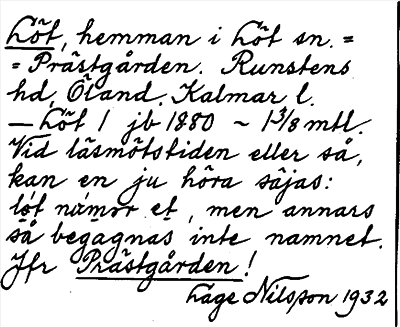 Löt, hemman i Löt sn. =
= Prästgården. Runstens
hd, Öland. Kalmar l.
— Löt 1 jb 1880 ~ 1 3/8 mtl.
Vid läsmötstiden eller så,
kan en ju höra säjas:
löt númǝr et, men annars
så begagnas inte namnet.
Jfr Prästgården!
Lage Nilsson 1932